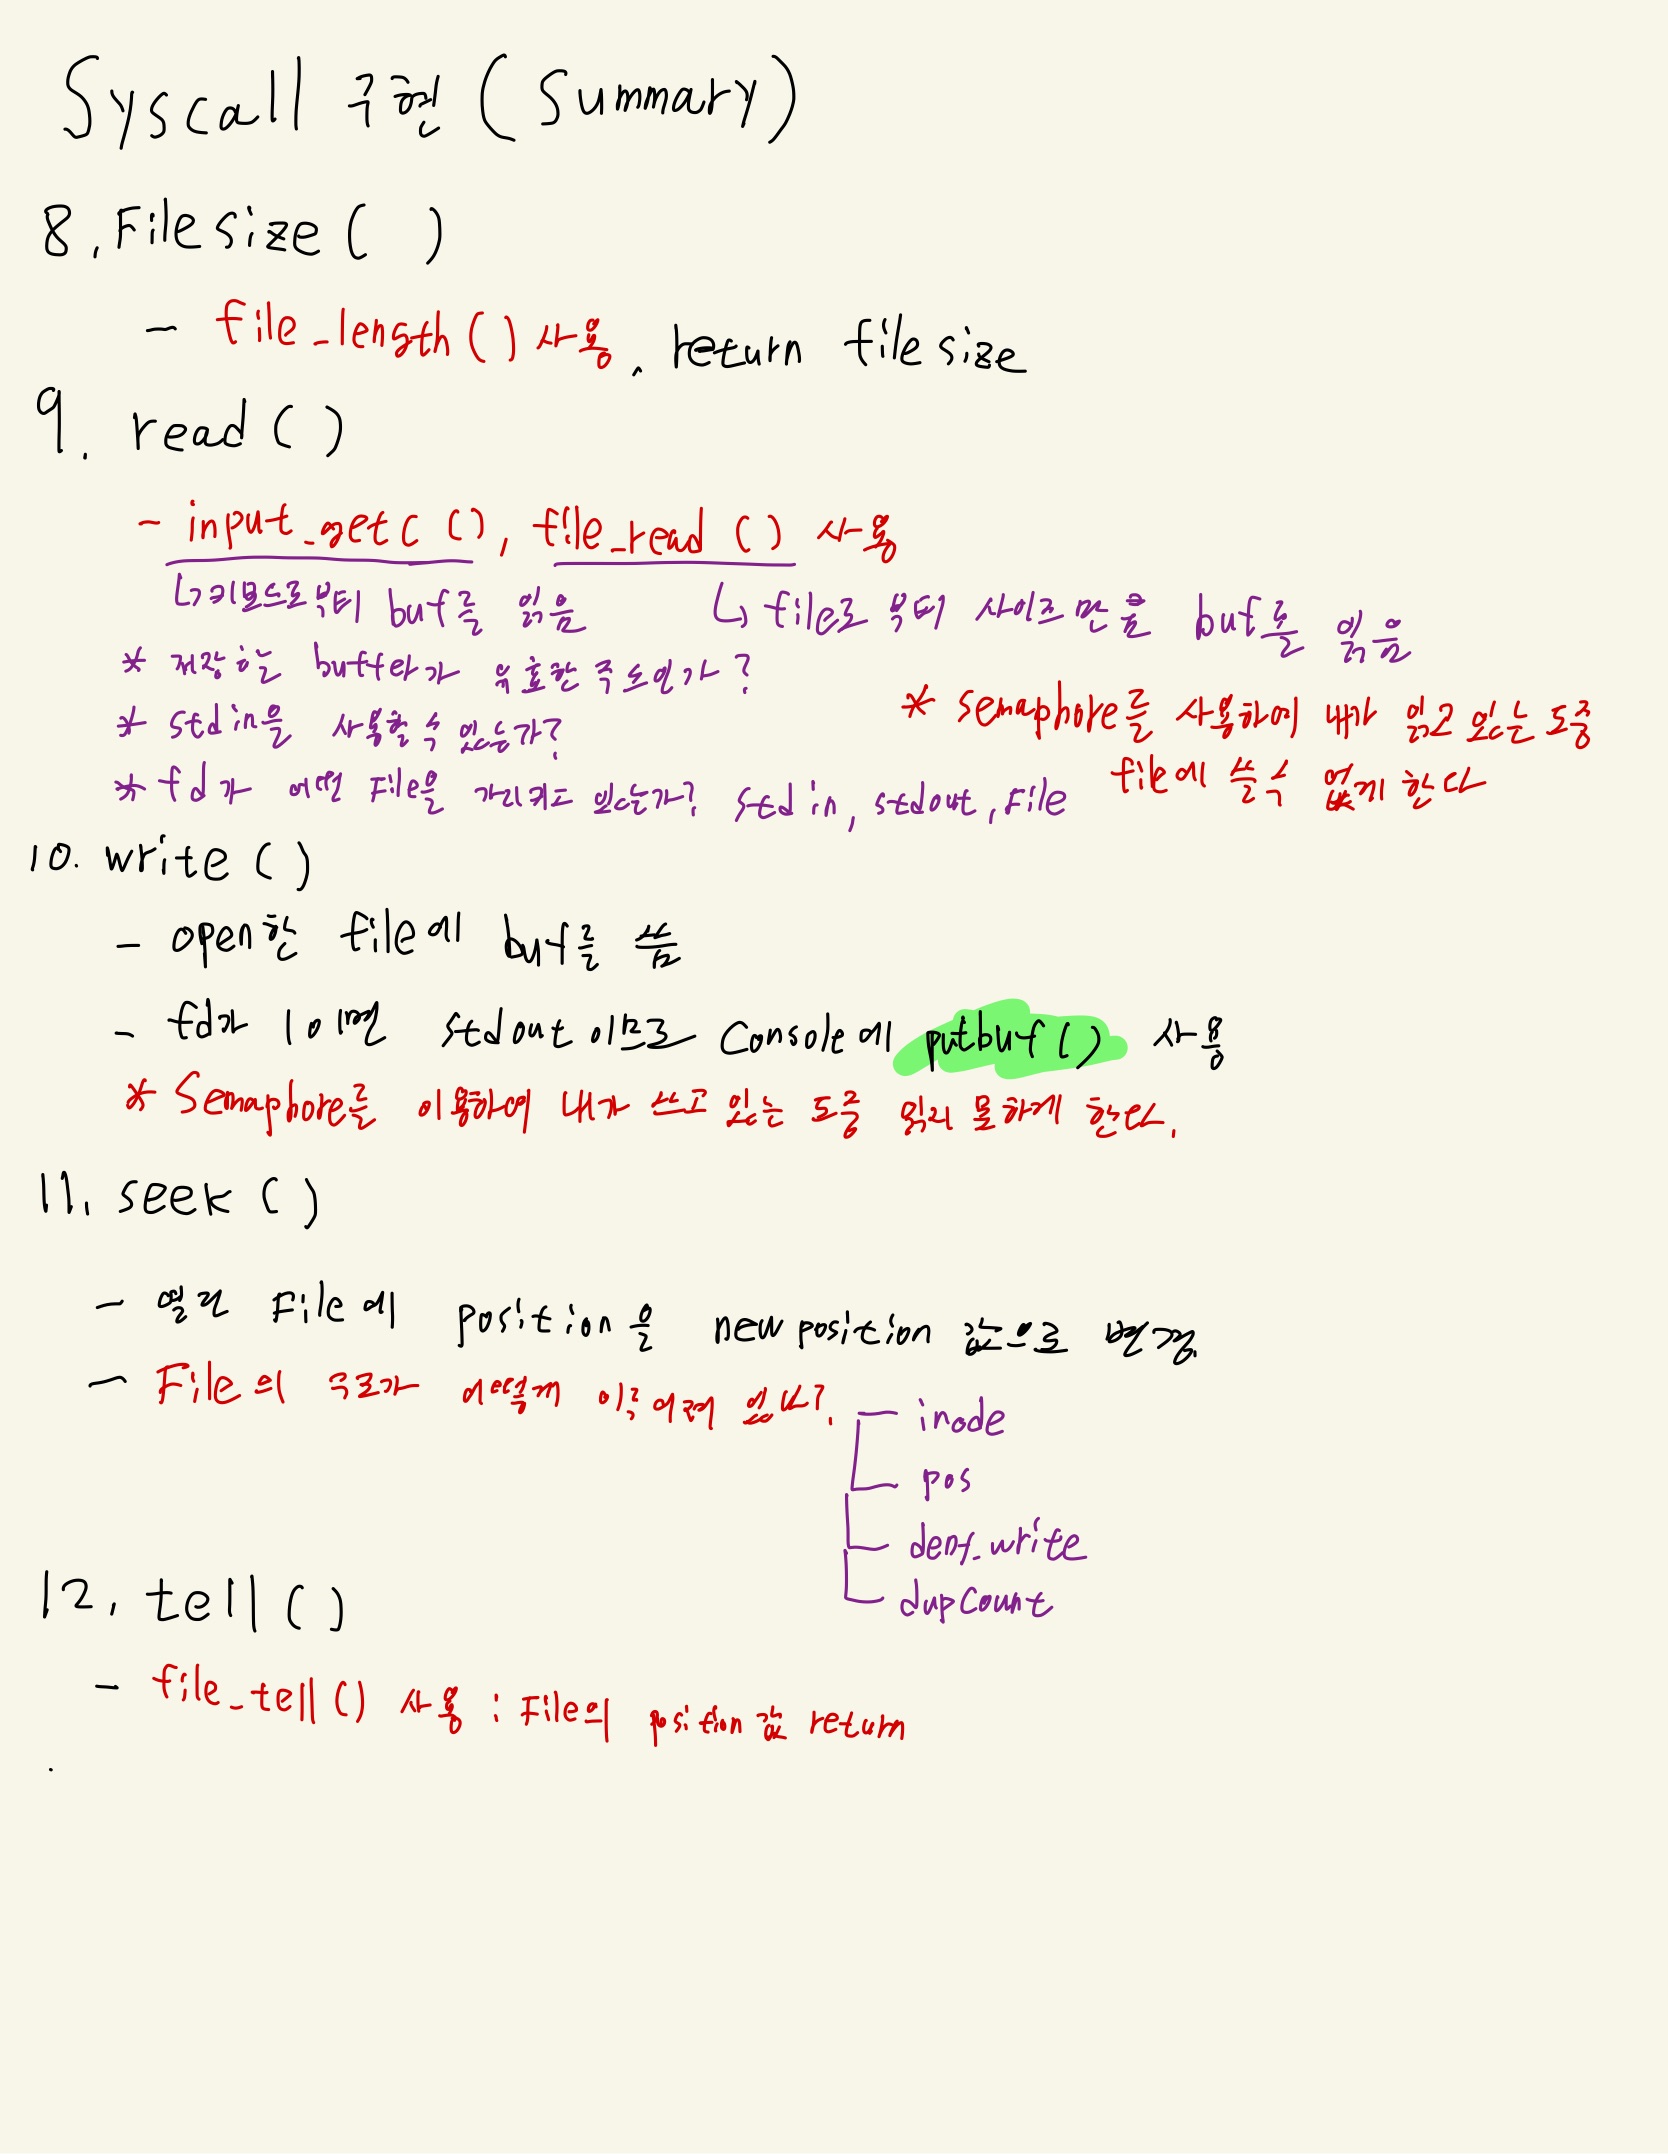 Syscall 구현 (Summary)
8. Filesize ( )
- file_length ( ) 사용. return filesize
9. read ( )
- input_getc ( ), file_read ( ) 사용
↳ 키보드로부터 buf를 읽음 ↳ file로 부터 사이즈 만큼 buf를 읽음
* 저장할 buffer가 유효한 주소인가?
* semaphore를 사용하여 내가 읽고 있는 도중
* stdin을 사용할 수 있는가?
file에 쓸 수 없게 한다
* fd가 어떤 File을 가리키고 있는가? stdin, stdout, File
10. write ( )
- open한 file에 buf를 씀
- fd가 1이면 stdout 이므로 Console에 putbuf ( ) 사용
* Semaphore를 이용하여 내가 쓰고 있는 도중 읽지 못하게 한다.
11. seek ( )
- 열린 File에 position을 new position 값으로 변경.
- File의 구조가 어떻게 이루어져 있나?
inode
pos
deny_write
dupCount
12. tell ( )
- file_tell ( ) 사용 : File의 position 값 return